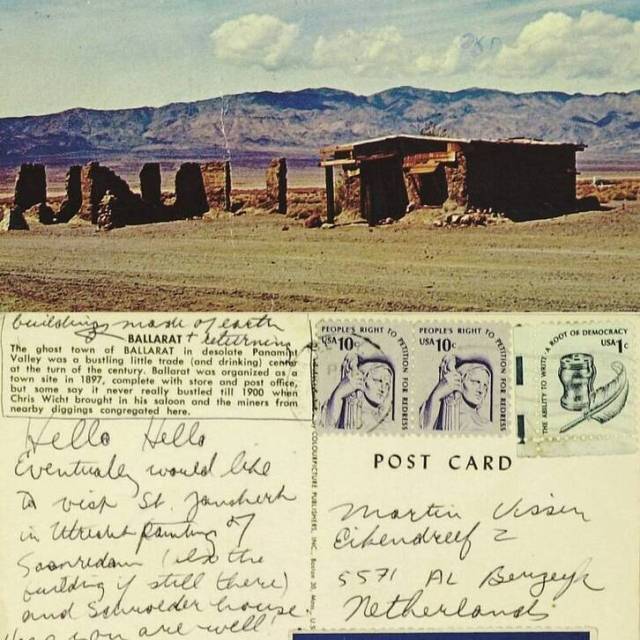 buildings made of earth
+ returning
BALLARAT
The ghost town of BALLARAT in desolate Panamint
Valley was a bustling little trade (and drinking) center
at the turn of the century. Ballarat was organized as a
town site in 1897, complete with store and post office,
but some say it never really bustled till 1900 when
Chris Wicht brought in his saloon and the miners from
nearby diggings congregated here.
Hello Hello
Eventually would like
to visit St. Janskerk
in Utrecht painting of
Saenredam (also the
building if still there)
and Schroeder house.
you are well!
COLOURPICTURE PUBLISHERS, INC., Boston 30, Mass., U.S.
PEOPLE'S RIGHT TO PETITION FOR REDRESS
USA 10c
PEOPLE'S RIGHT TO PETITION FOR REDRESS
USA 10c
THE ABILITY TO WRITE, A ROOT OF DEMOCRACY
USA 1c
POST CARD
Martin Vissen
Eikendreef 2
5571 AL Bergeyk
Netherlands